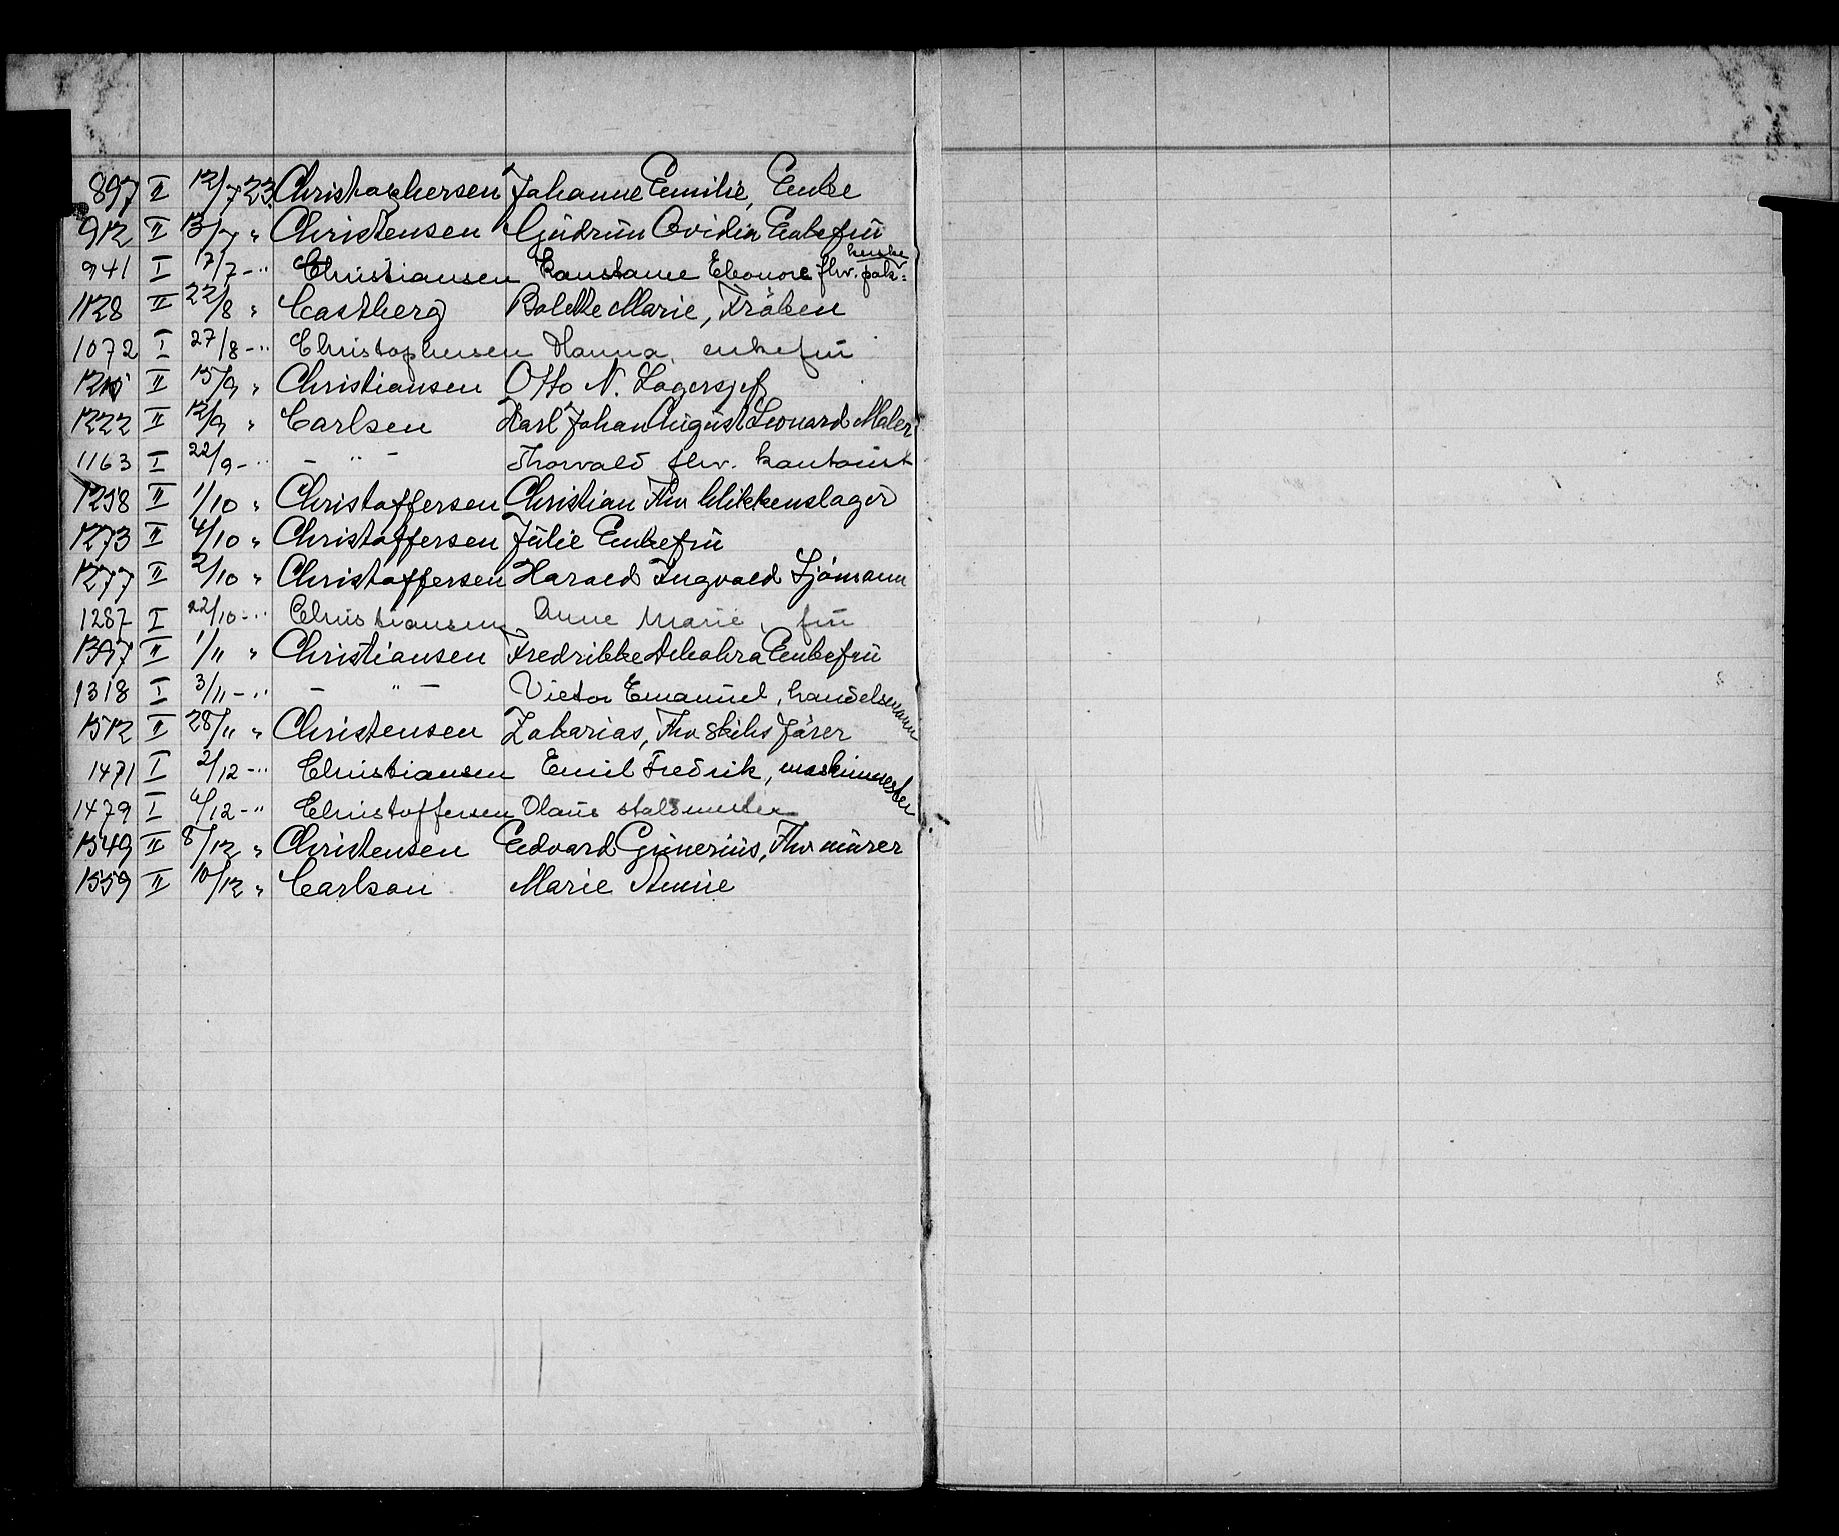 897 II 12/7 23 Christophersen Johanne Emilie, Enke
912 II 13/7 " Christensen Gudrun Ovidia Enkefru
941 I 17/7 - " Christiansen Konstanse Eleonore fhv. pak:
1128 II 22/8 " Castberg Bolette Marie, Frøken
1072 I 27/8 - " Christophersen Hanna, enkefrü
II 15/9 " Christiansen Otto N. Lagersjef
1222 II 12/9 " Carlsen Karl Johan August Leonard Maler
1163 I 22/9 - " - " - Thorvald fhv. kontorist
1258 II 1/10 " Christoffersen Christian Fhv blikkenslager
1273 II 4/10 " Christoffersen Julie Enkefrü
1277 II 2/10 " Christoffersen Harald Ingvald Sjømann
1287 I 22/10 - " Christiansen Anne Marie, frü
1397 II 1/11 " Christiansen Fredrikke Enkefrü
1318 I 3/11 - " - " - Victor Emanuel, handelsmann
1512 II 28/11 " Christensen Zakarias, Fhv Skibsfører
1471 I 2/12 - " Christiansen Emil Fredrik, maskinmester
1479 I 4/12 - " Christoffersen Olaus staldmester
1549 II 8/12 " Christensen Edvard Gunerius, Fhv murer
1559 II 10/12 " Carlson Marie Annie